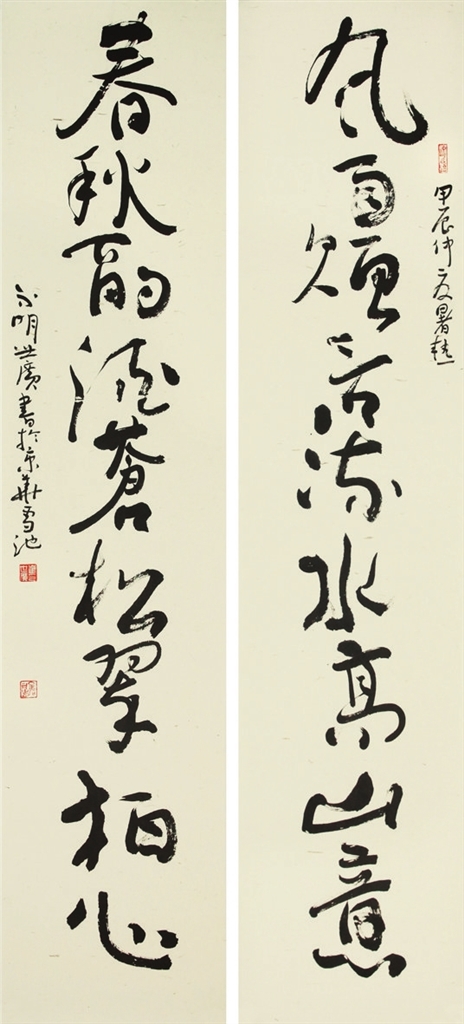 甲辰仲夏暑
風雨流水高山意
春秋酌蒼松翠柏心
明世廣書於京華雪池